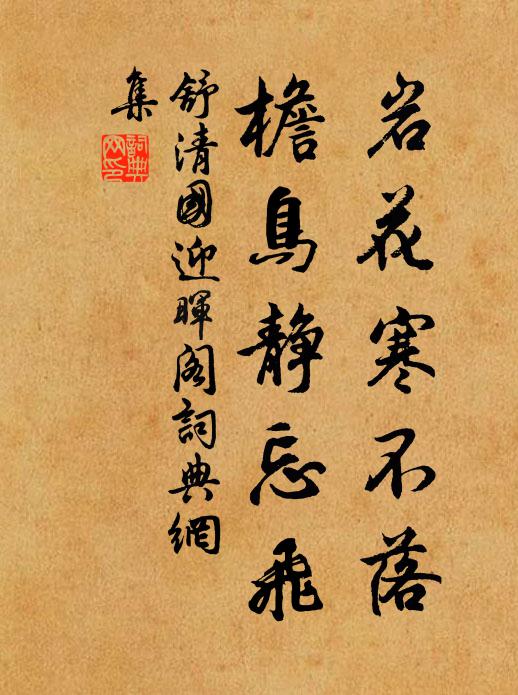 岩花寒不落
檐鳥静忘飛
舒清國迎暉閣詞典網
集
詞典
网印